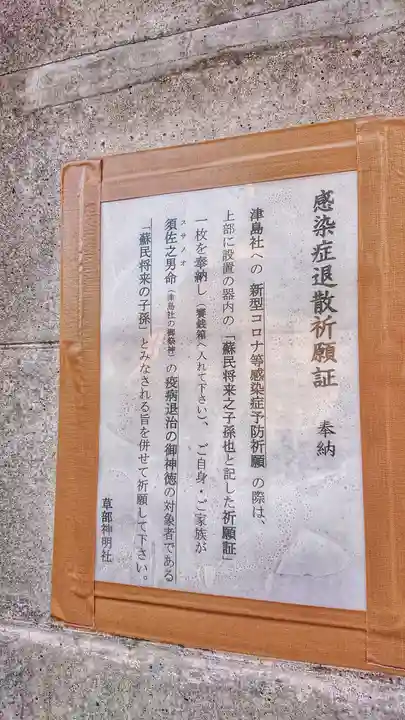 感染症退散祈願証　奉納
津島社への 新型コロナ等感染症予防祈願 の際は、
上部に設置の器内の「蘇民将来之子孫也と記した祈願証」
一枚を奉納し（賽銭箱へ入れて下さい）、ご自身・ご家族が
スサノオ
須佐之男命（津島社の御祭神）の疫病退治の御神徳の対象者である
「蘇民将来の子孫」とみなされる旨を併せて祈願して下さい。
草部神明社